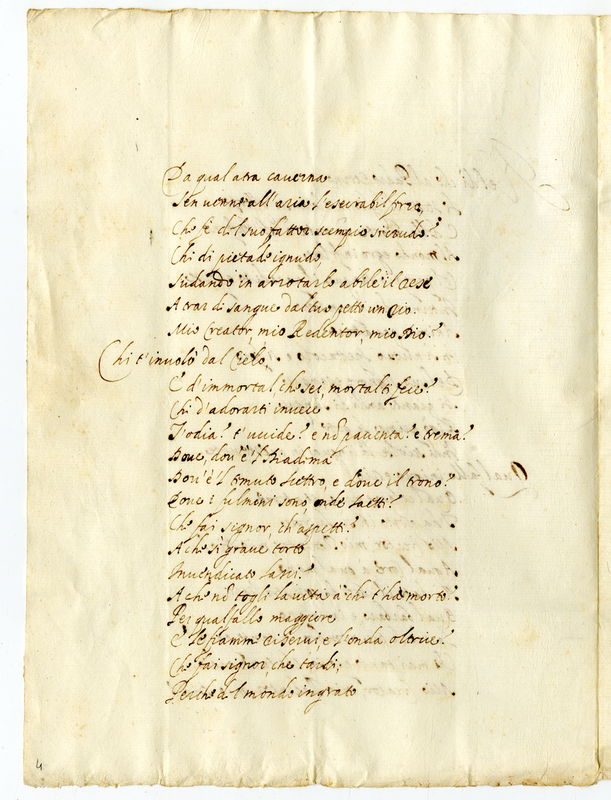 Da qual atra caverna
Sen venne all'aria l'esecrabil fren,
Che fè del suo fattor scempio sì crudo?
Chi di pietade ignudo
Sudando in arrotarlo abile il rese
A trar di sangue dal tuo petto un rio.
Mio Creator, mio Redentor, mio Dio?
Chi t'involò dal Cielo,
E d'immortal che sei, mortal ti fece?
Chi d'adorarti invece
T'odia? t'uccide? e nõ paventa? e trema?
Dove, dov'è il Diadima
Dov'è l temuto scettro, e dove il trono?
Dove i fulmini sono, onde saetti?
Che fai signor, ch'aspetti?
A che sì grave torto
Invendicato lassi?
A che nõ togli la vita à chi t'ha morto?
Per qual fallo maggiore
E le fiamme riserui, e l'onda oltrice?
Che fai signor, che tardi;
Perche del mondo ingrato
4